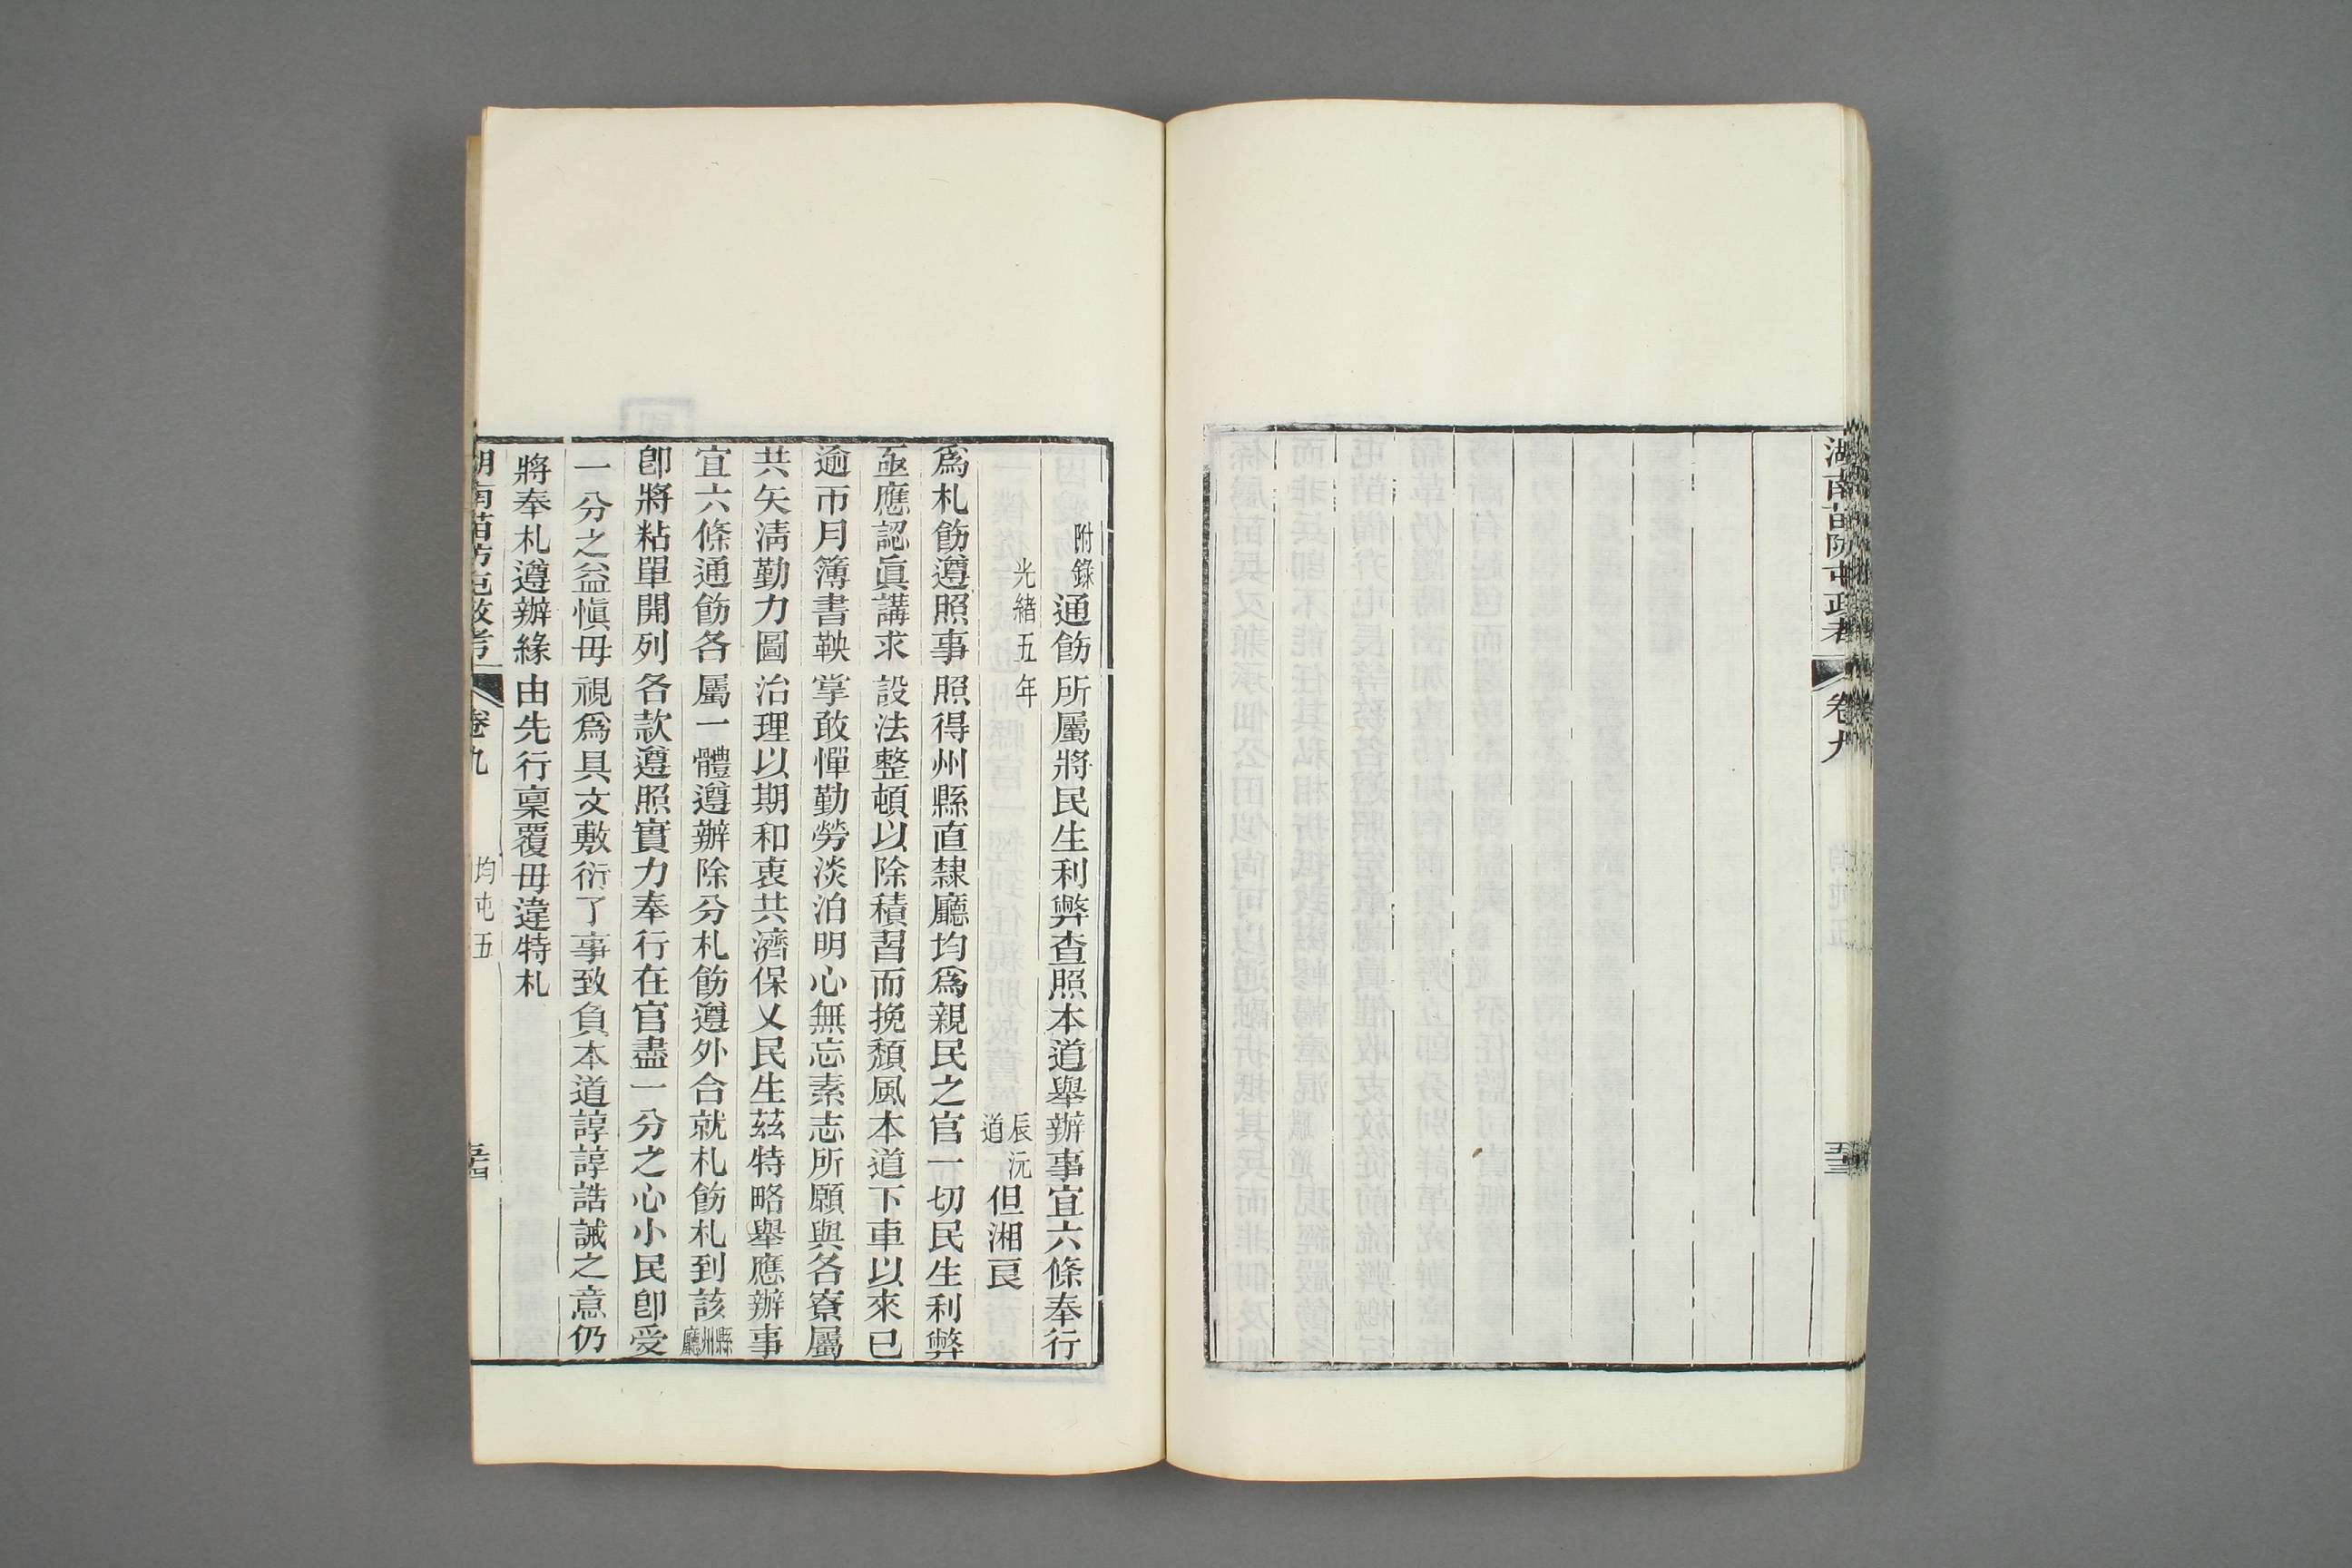 湖南苗防屯政考
卷九
五十三
附錄通飭所屬將民生利弊查照本道舉辦事宜六條奉行
光緒五年
辰沅道但湘良
爲札飭遵照事照得州縣直隸廳均爲親民之官一切民生利弊
亟應認眞講求設法整頓以除積習而挽頹風本道下車以來已
逾帀月簿書鞅掌敢憚勤勞淡泊明心無忘素志所願與各寮屬
共矢淸勤力圖治理以期和衷共濟保乂民生茲特略舉應辦事
宜六條通飭各屬一體遵辦除分札飭遵外合就札飭札到該縣州廳
卽將粘單開列各款遵照實力奉行在官盡一分之心小民卽受
一分之益愼毋視爲具文敷衍了事致負本道諄諄誥誡之意仍
將奉札遵辦緣由先行稟覆毋違特札
湖南苗防屯政考
卷九
均屯五
五十四